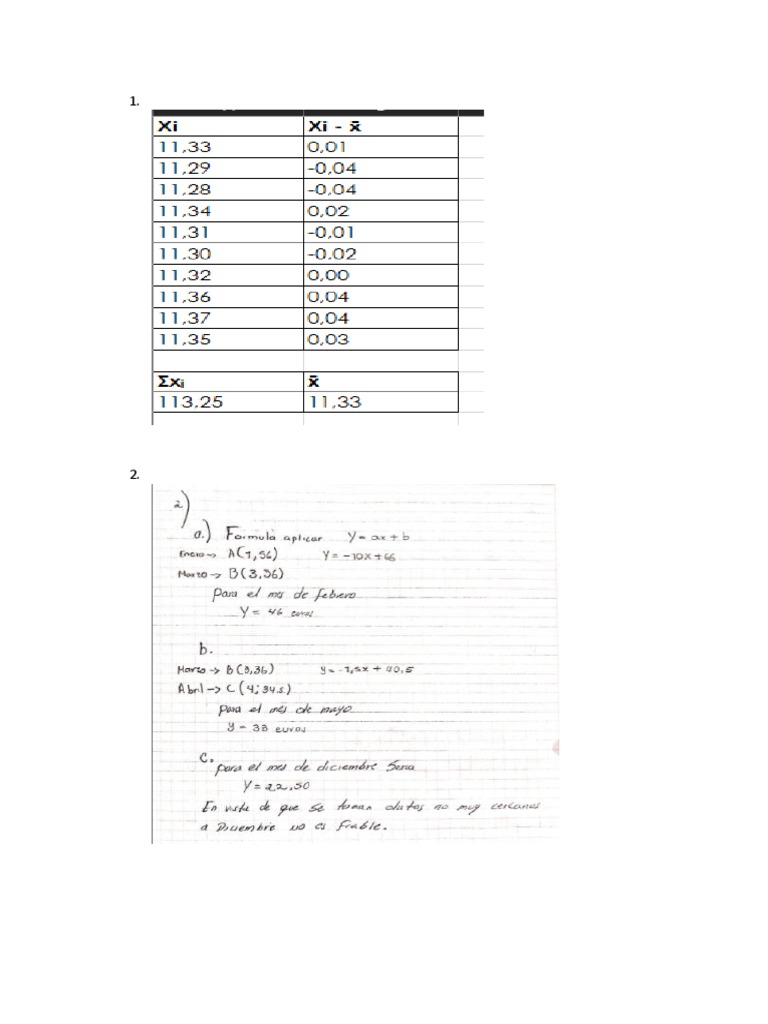 1.
Xi Xi - x̄
11,33 0,01
11,29 -0,04
11,28 -0,04
11,34 0,02
11,31 -0,01
11,30 -0,02
11,32 0,00
11,36 0,04
11,37 0,04
11,35 0,03
Σxi x̄
113,25 11,33
2.
2)
a.) Formula aplicar y = ax + b
Enero → A(1,56) Y = -10x + 66
Marzo → B(3,36)
para el mes de febrero
Y = 46 euros
b.
Marzo → B(3,36) y = -1,5x + 40,5
Abril → C(4; 34.5)
para el mes de mayo
y = 33 euros
c.
para el mes de diciembre Seria
Y = 22,50
En vista de que se toman datos no muy cercanos
a Diciembre no es fiable.